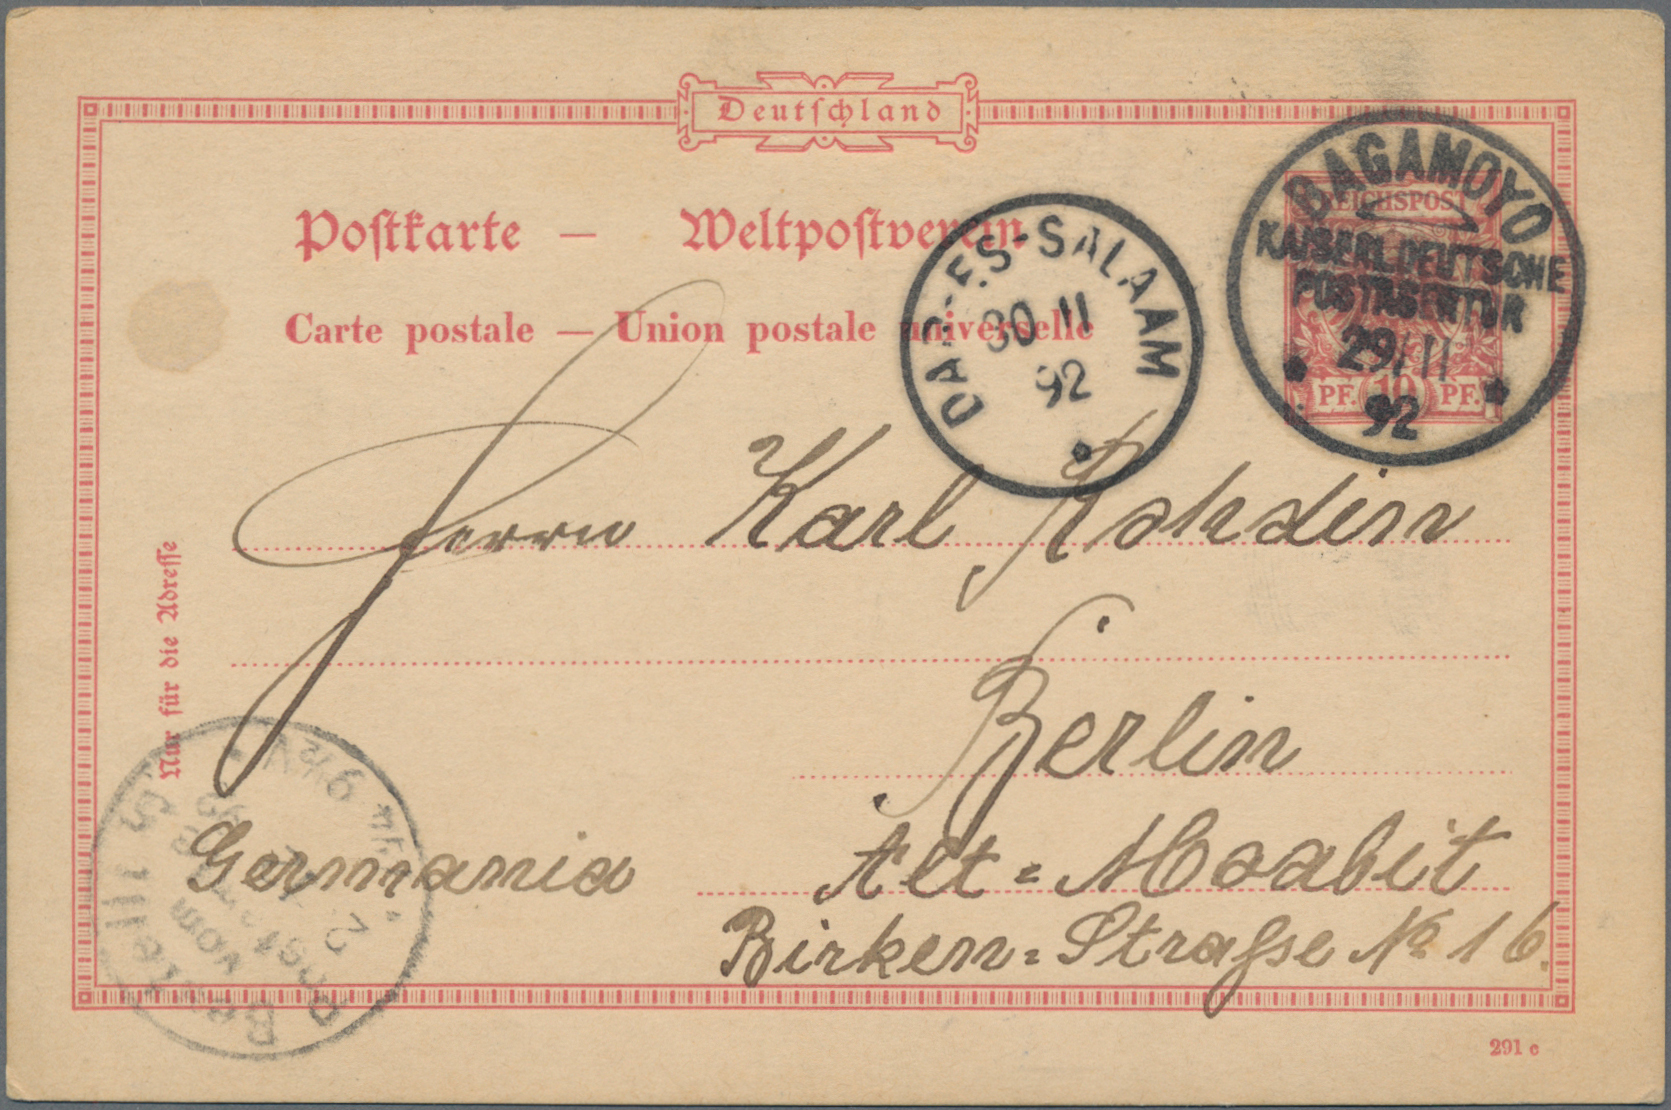 Deutschland
Postkarte — Weltpostverein
Carte postale — Union postale universelle
REICHSPOST
PF. 10 PF.
BAGAMOYO
KAISERL. DEUTSCHE
POSTAGENTUR
29/11
92
DAR-ES-SALAAM
30 11
92
Herrn Karl
Berlin
Germania Alt=Moabit
Birken=Straße No 16.
Nur für die Adresse
Bestellt
vom
Postamte
291 e